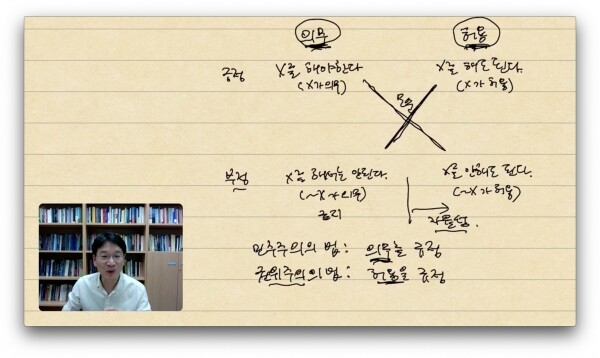 의무 허용
긍정 X를 해야한다 X를 해도 된다.
(X가 의무) (X가 허용)
모순
부정 X를 해서는 안된다. X를 안해도 된다.
(~X가 의무) (~X가 허용)
금지
자율성.
민주주의의 법: 의무를 긍정
권위주의의 법: 허용을 긍정